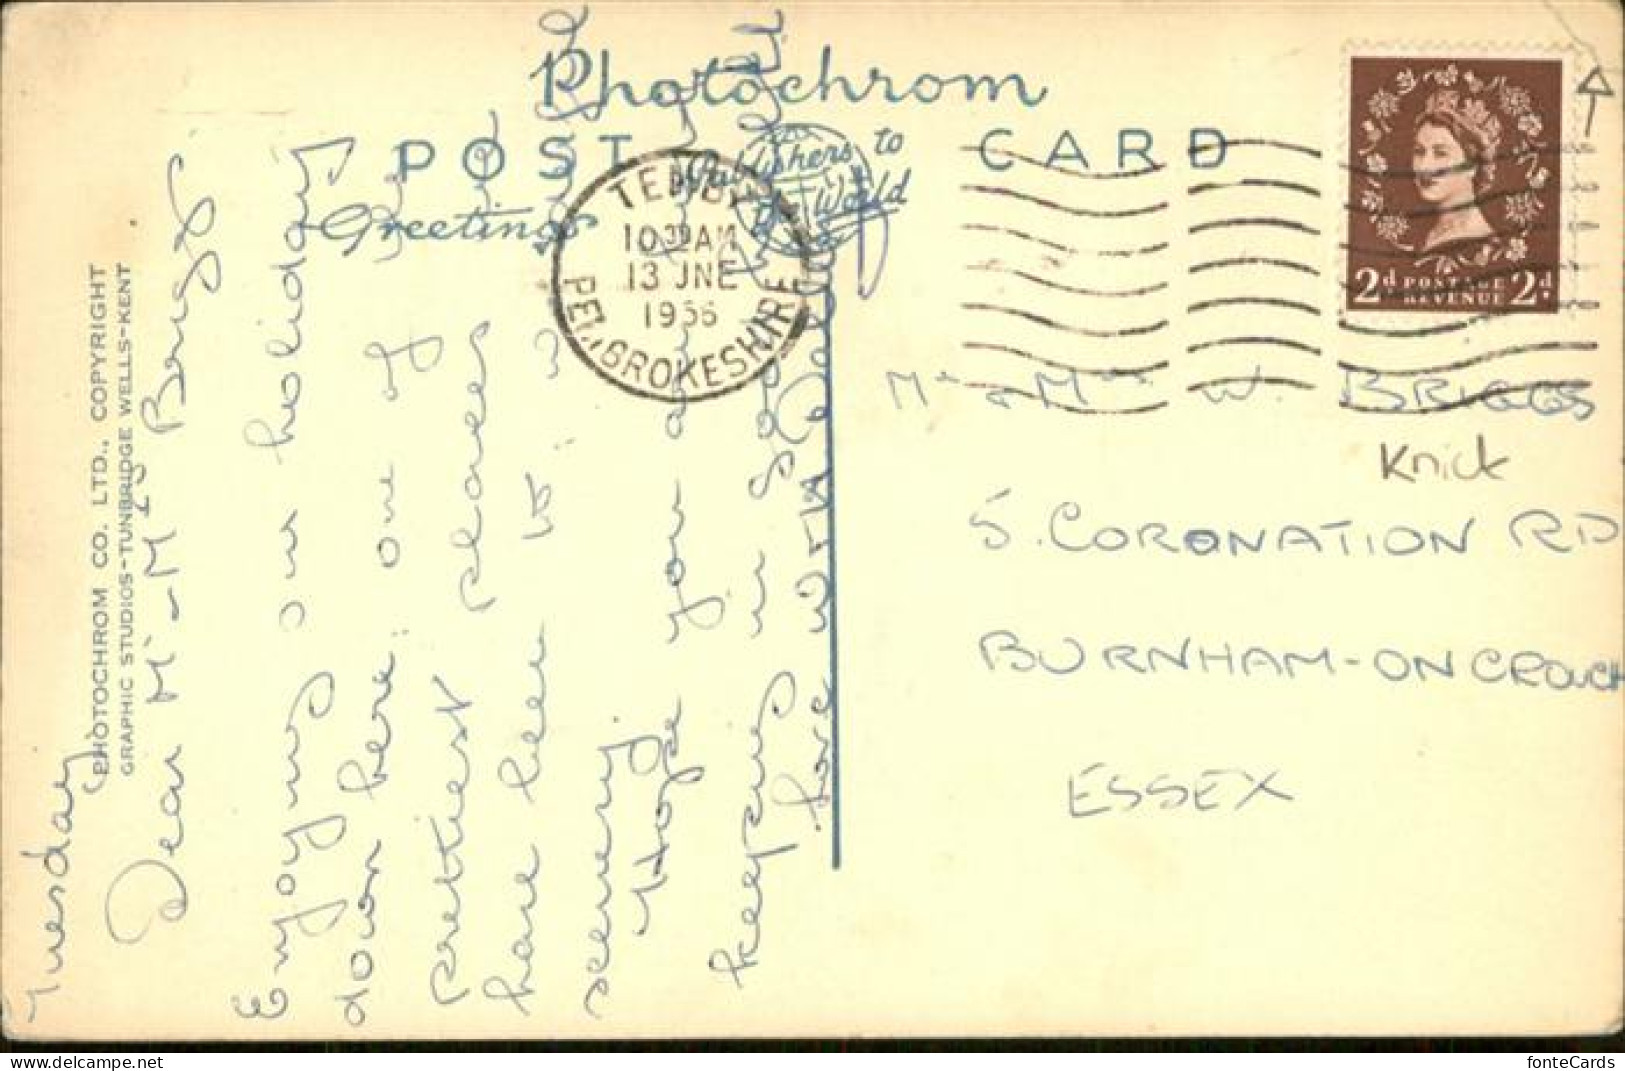 Photochrom
POST CARD
Publishers to
the World
Greetings
TENBY
10 30 AM
13 JNE
1956
PEMBROKESHIRE
2d POSTAGE 2d
REVENUE
PHOTOCHROM CO. LTD., COPYRIGHT
GRAPHIC STUDIOS-TUNBRIDGE WELLS-KENT
Tuesday
Dear Mr - Mrs Briggs
Enjoying our holiday
down here. one of the
prettiest places
have been to in
scenery
Hope you are
keeping in good
love
Mr & Mrs W. BRIGGS
Knick
5. CORONATION RD
BURNHAM-ON CROUCH
ESSEX
delcampe.net
fonteCards